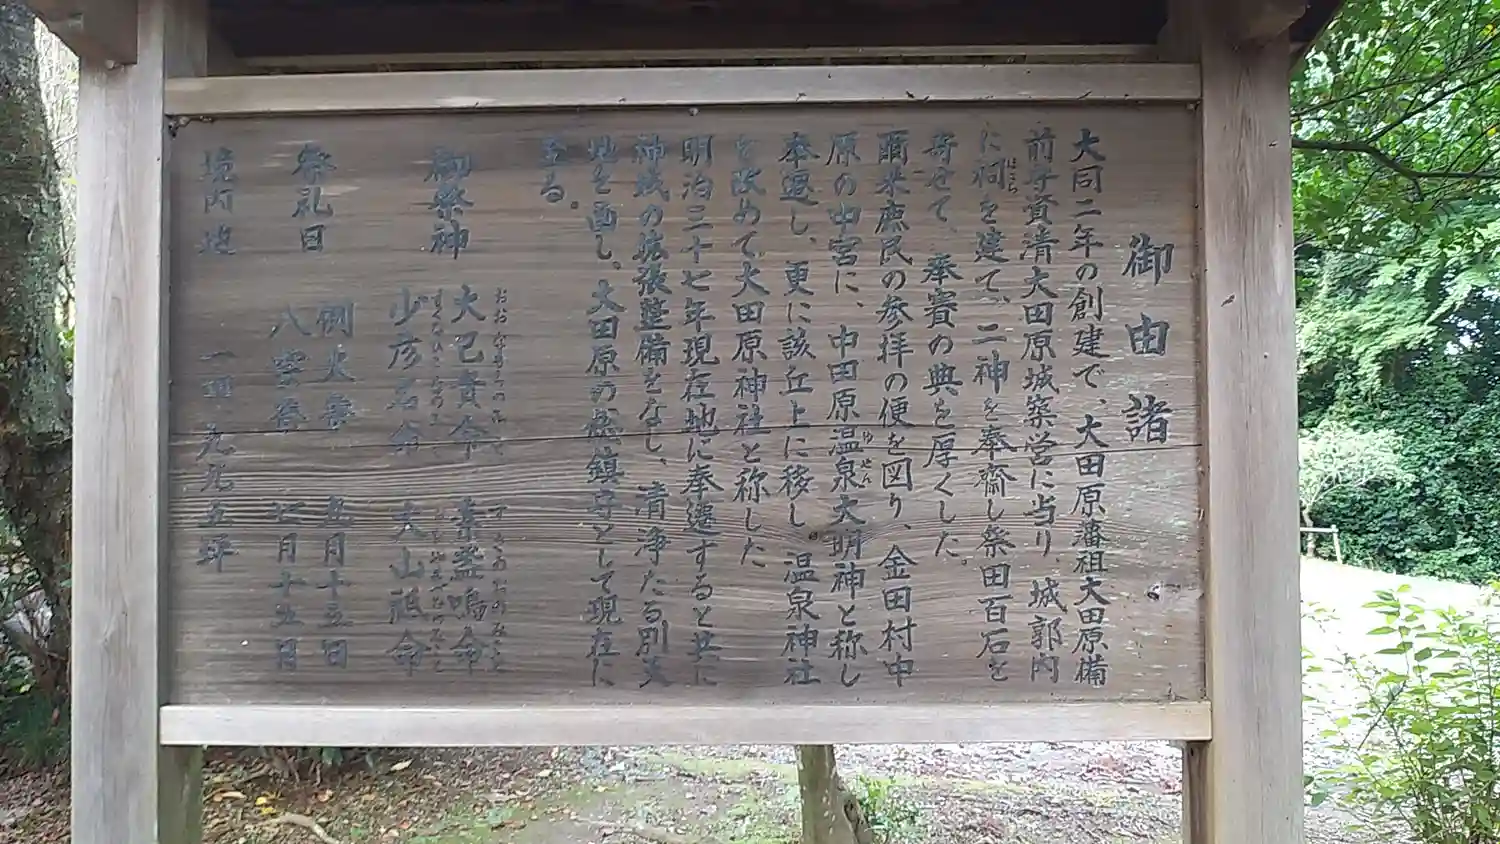 御由諸
大同二年の創建で、大田原藩祖大田原備
前守資清大田原城築営に与り、城郭内
に祠を建て、二神を奉齋し祭田百石を
ほこら
寄せて、奉賽の典を厚くした。
爾来庶民の参拝の便を図り、金田村中
原の中宮に、中田原温泉大明神と称し
ゆぜん
奉遷し、更に該丘上に移し温泉神社
を改めて大田原神社と称した
明治三十七年現在地に奉遷すると共に
神域の拡張整備をなし、清浄たる別天
地を画し。大田原の総鎮守として現在に
至る。
御祭神 大己貴命 素盞嗚命
おおなむちのみこと すさのおのみこと
少彦名命 大山祗命
すくなひこなのみこと おおやまづみのみこと
祭礼日 例大祭 五月十五日
八雲祭 七月十五日
境内地 一四九九五坪